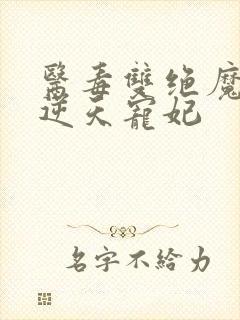 醫毒雙绝魔
逆天寵妃
名字不給力